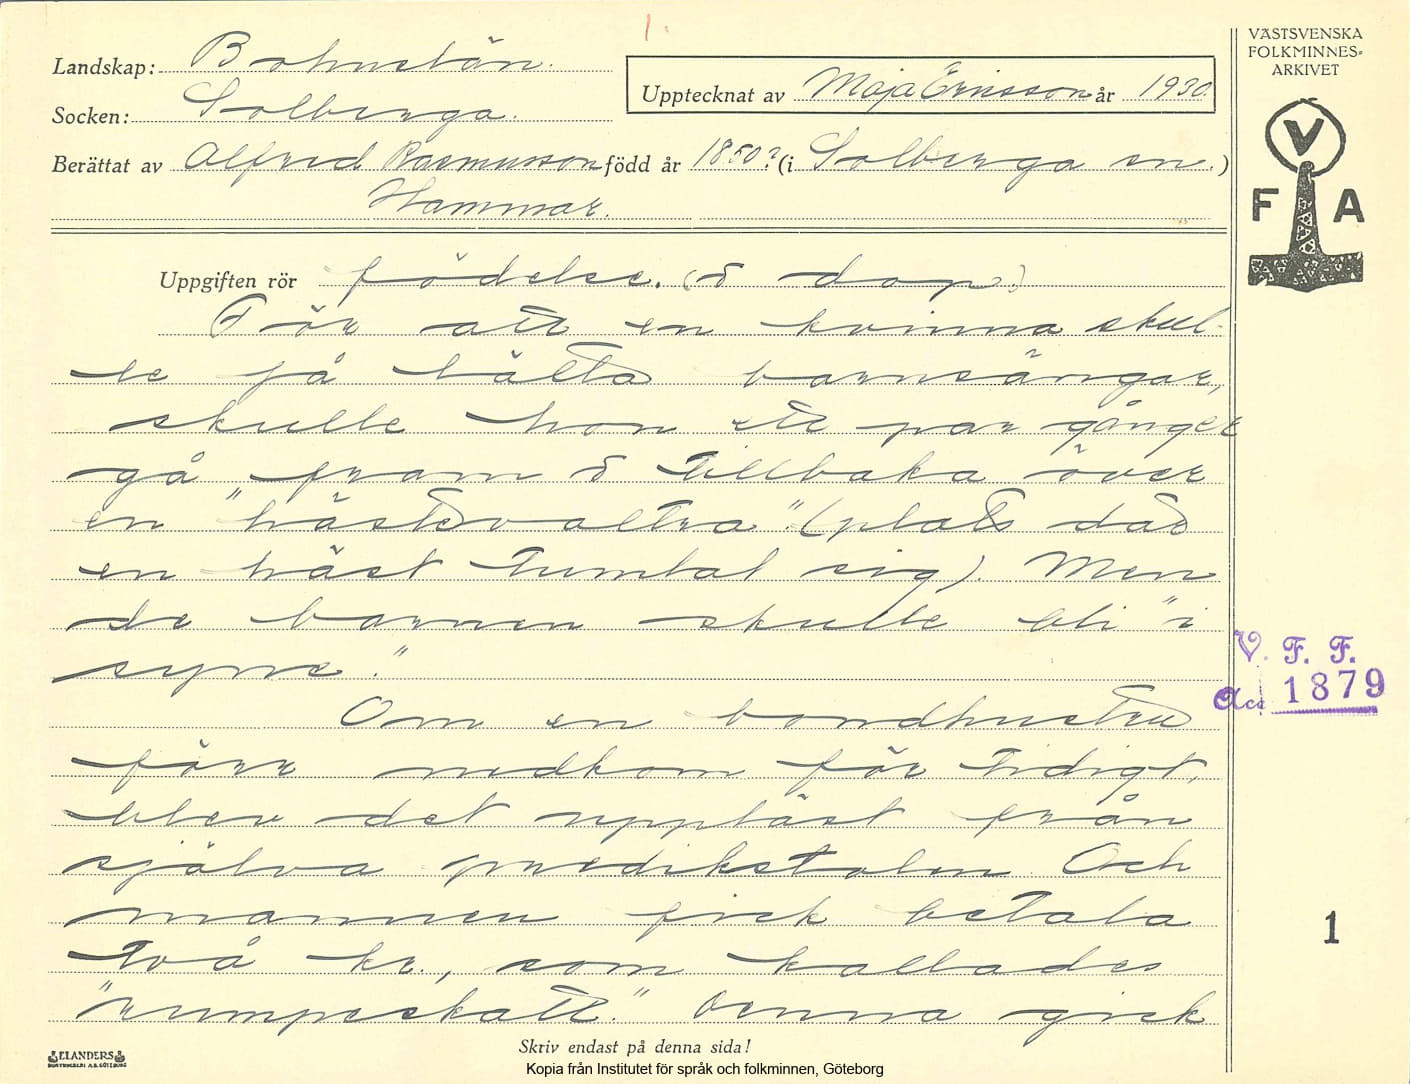 1.
VÄSTSVENSKA
FOLKMINNES=
ARKIVET
V
F A
Landskap: Bohuslän.
Upptecknat av Maja Ericsson år 1930.
Socken: Solberga.
Berättat av Alfred Rasmusson född år 1850? (i Solberga sn.)
Hammar.
Uppgiften rör födelse. (o dop)
För att en kvinna skul-
le få lätta barnsängar,
skulle hon ett par gånger
gå fram o tillbaka över
en "hästavaltra." (plats där
en häst tumlat sig). Men
de barnen skulle bli "i
syne."
Om en bondhustru
förr nedkom för tidigt,
blev det uppläst från
själva predikstolen. Och
mannen fick betala
två kr., som kallades
"rumpeskatt." Denna gick
V. F. F.
Acc 1879
1
ELANDERS
BOKTRYCKERI A.B. GÖTEBORG
Skriv endast på denna sida!
Kopia från Institutet för språk och folkminnen, Göteborg